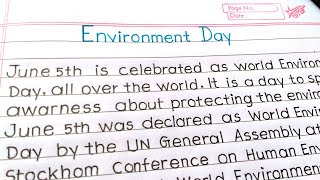 Page No.
Date
Environment Day
June 5th is celebrated as World Environ
Day. all over the world. It is a day to sp
awarness about protecting the envir
June 5th was declared as World Enviro
Day by the UN General Assembly at
Stockhom Conference on Human Env
World Environme